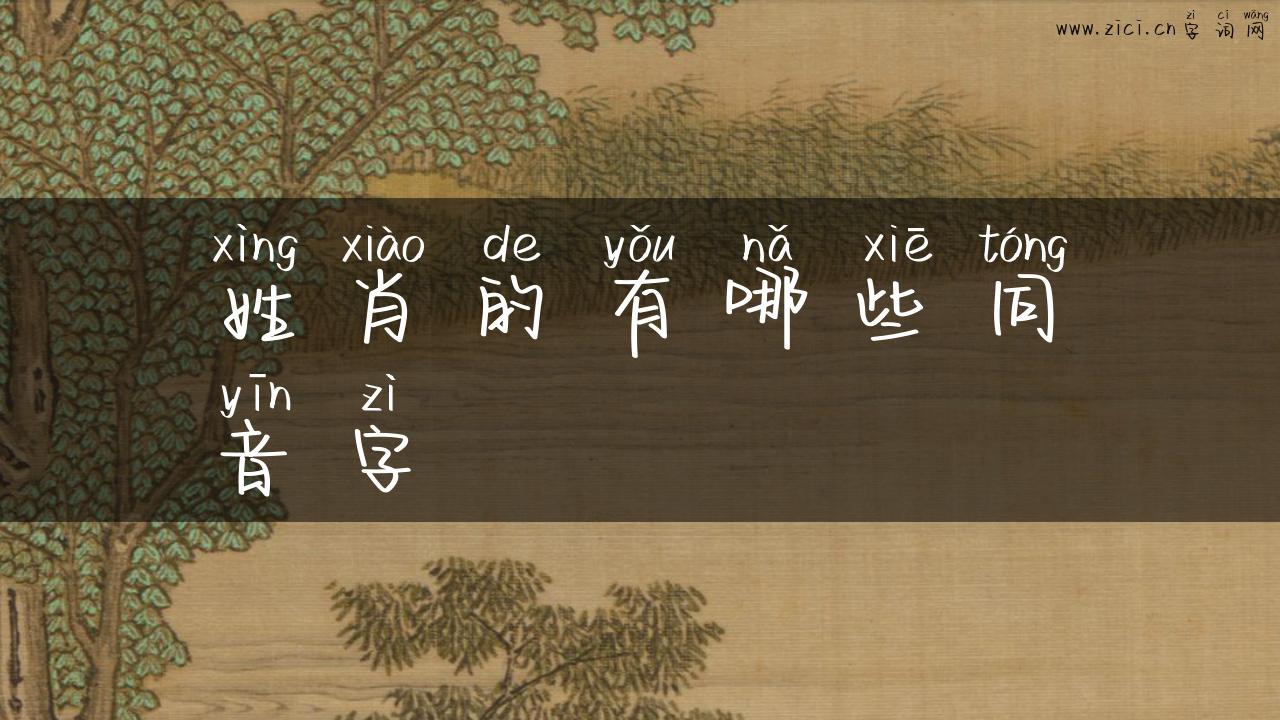 zì cí wǎng
www.zici.cn 字词网
xìng xiào de yǒu nǎ xiē tóng
姓肖的有哪些同
yīn zì
音字